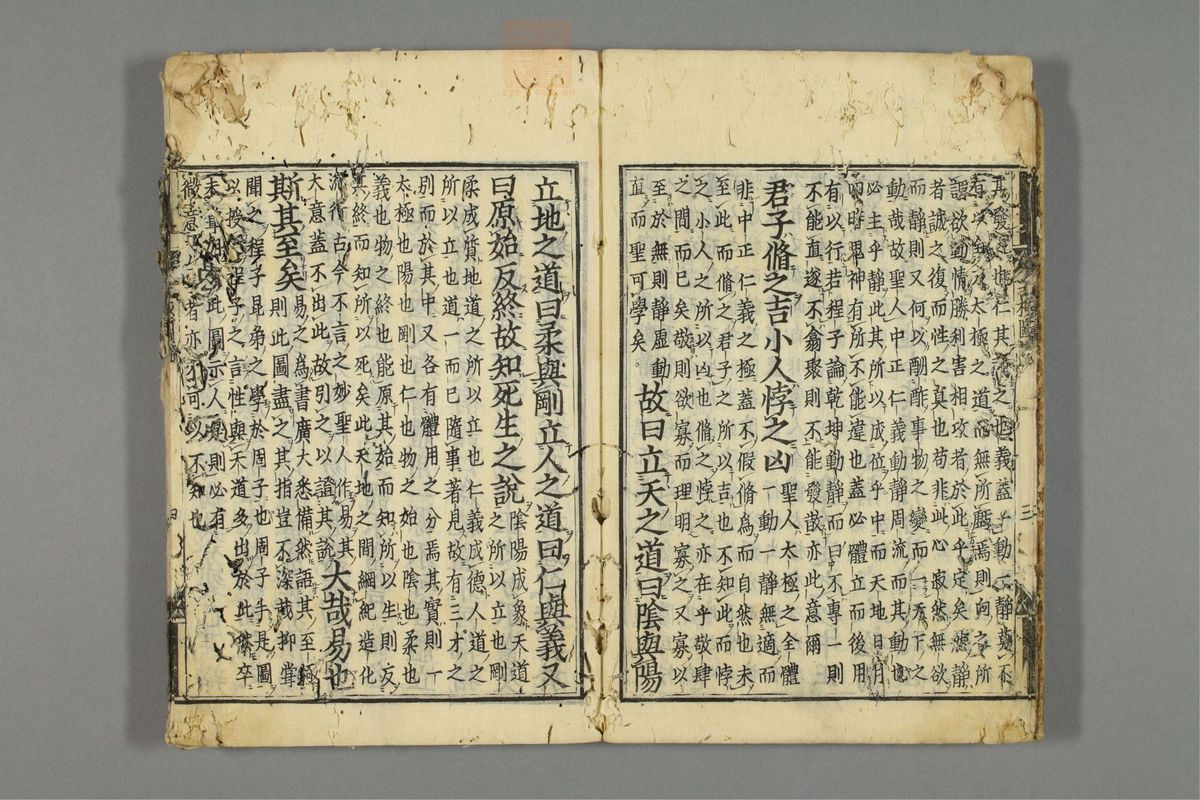 其發之也仁其之也義蓋一動一靜莫不
有以全太極之道而無所虧焉則向之所
謂欲動情勝利害相攻者於此乎定矣然靜
者誠之復而性之真也苟非此心寂然無欲
而靜則又何以酬酢事物之變而一天下之
動哉故聖人中正仁義動靜周流而其動也
必主乎靜此其所以成位乎中而天地日月
四時鬼神有所不能違也蓋必體立而後用
有以行若程子論乾坤動靜而曰不專一則
不能直遂不翕聚則不能發散亦此意爾
君子脩之吉小人悖之凶
聖人太極之全體
一動一靜無適而
非中正仁義之極蓋不假脩為而自然也未
至此而脩之君子之所以吉也不知此而悖
之小人之所以凶也脩之悖之亦在乎敬肆
之間而已矣敬則欲寡而理明寡之又寡以
至於無則靜虛動
直而聖可學矣
故曰立天之道曰陰與陽
三
立地之道曰柔與剛立人之道曰仁與義又
曰原始反終故知死生之說
陰陽成象天道
之所以立也剛
柔成質地道之所以立也仁義成德人道之
所以立也道一而已隨事著見故有三才之
別而於其中又各有體用之分焉其實則一
太極也陽也剛也仁也物之始也陰也柔也
義也物之終也能原其始而知所以生則反
其終而知所以死矣此天地之間綱紀造化
流行古今不言之妙聖人作易其
大意蓋不出此故引之以證其說
大哉易也
斯其至矣
易之為書廣大悉備然語其至極
則此圖盡之其指豈不深哉抑嘗
聞之程子昆弟之學於周子也周子手是圖
以授程子之言性與天道多出於此然卒
未嘗以此圖示人是則必有
微意者亦不可以不知也